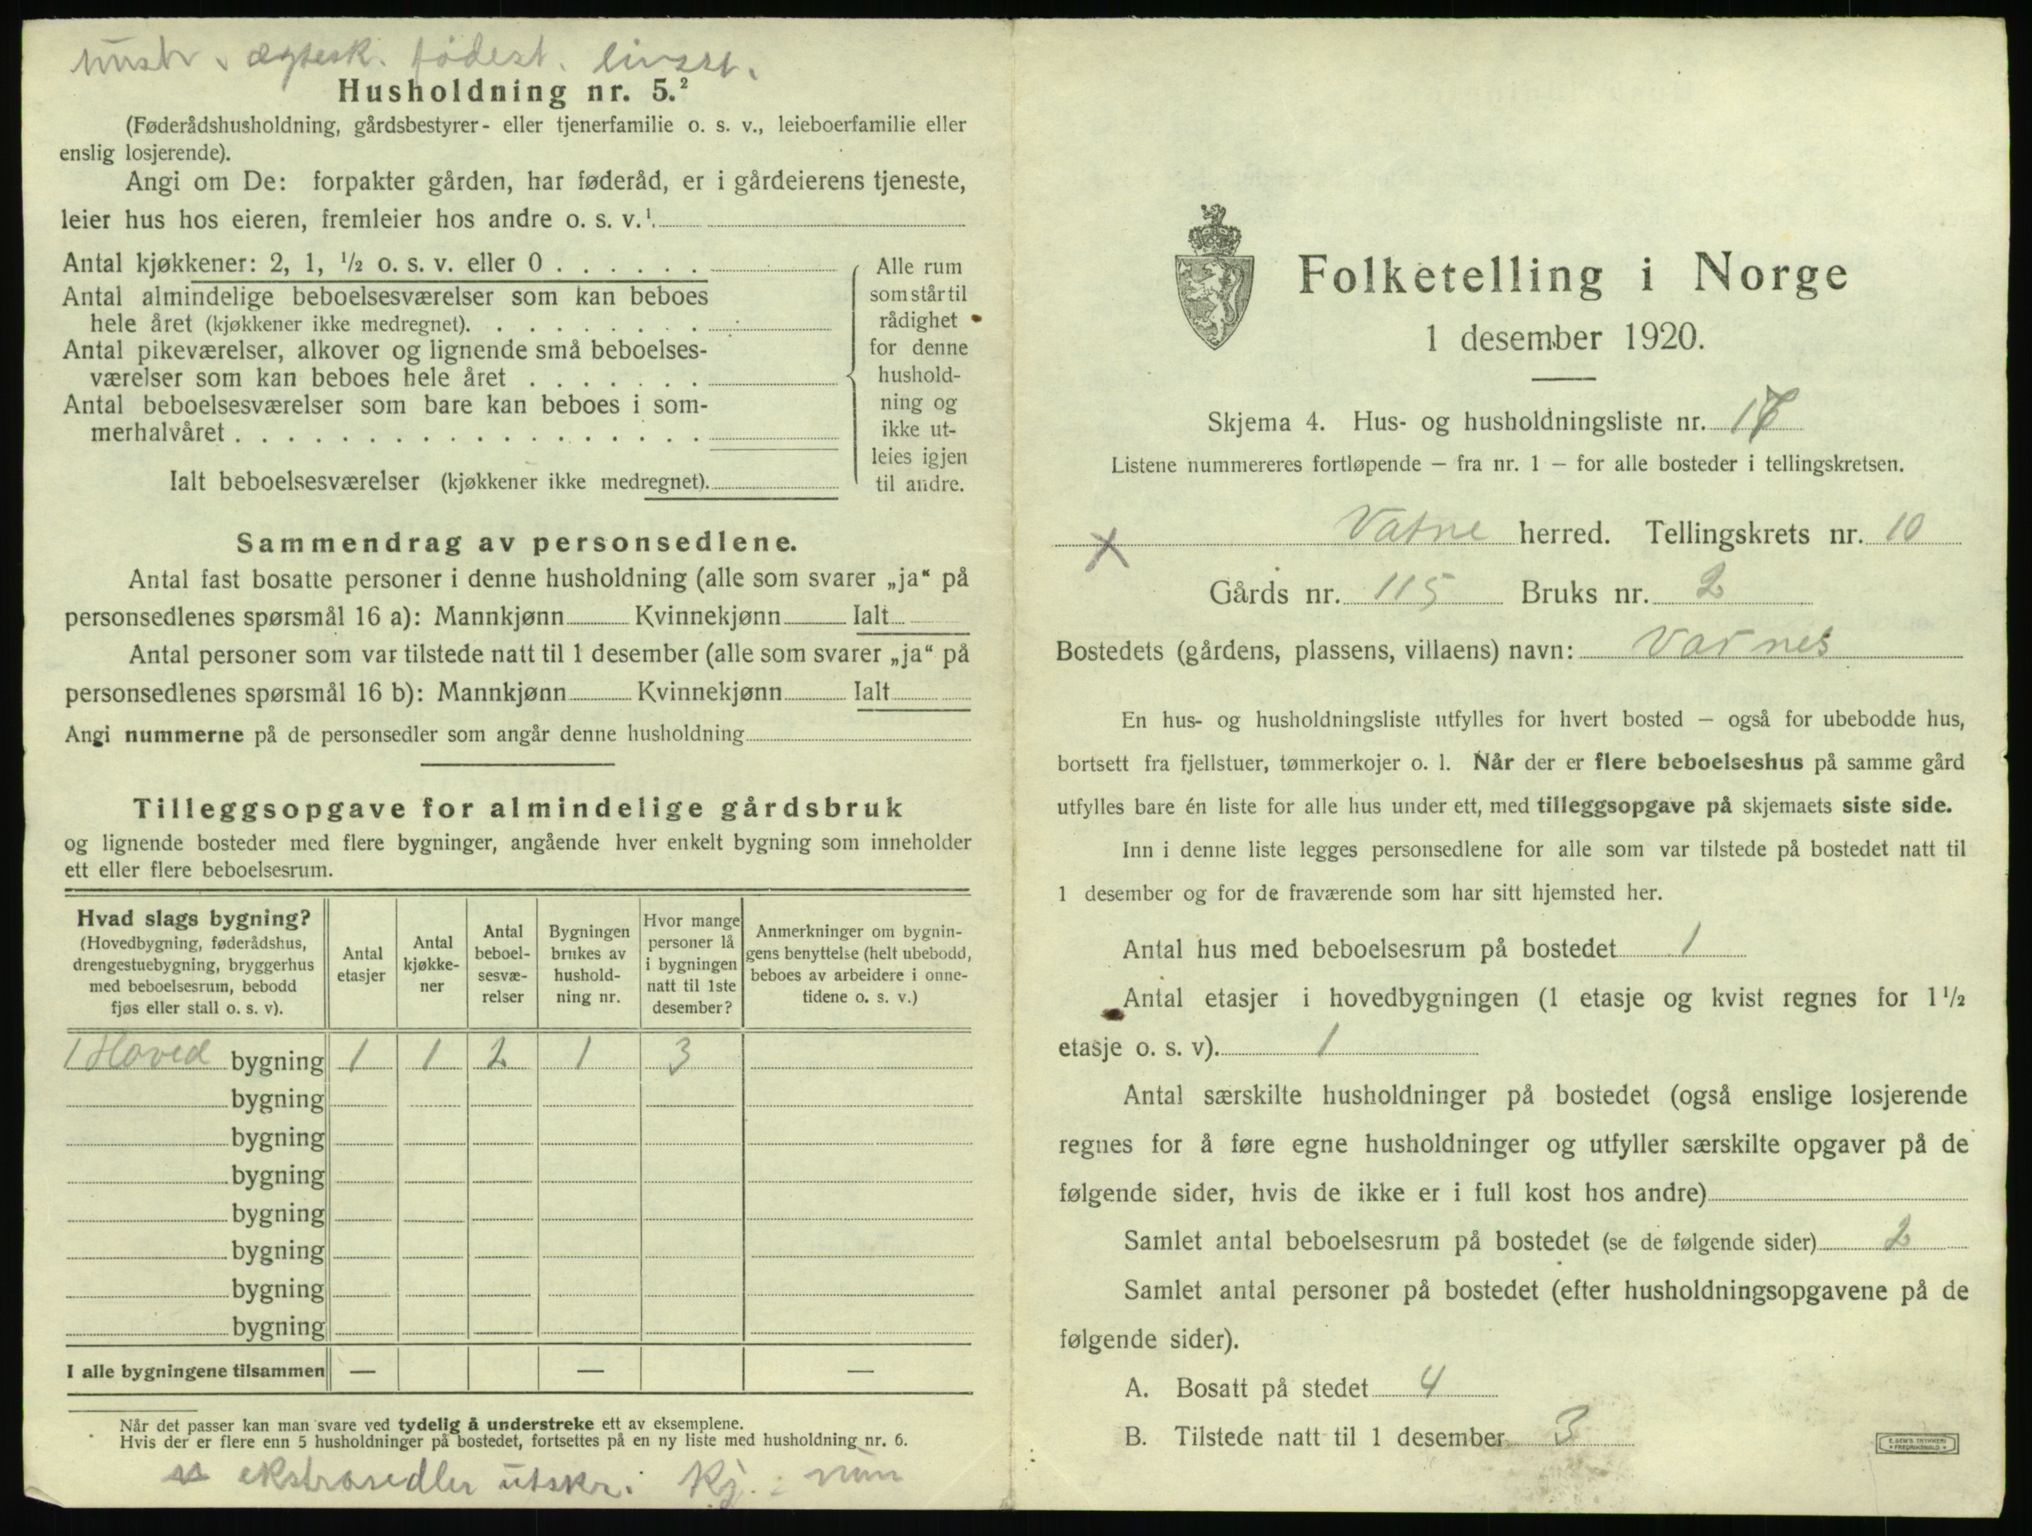 ægtesk. fødest. livsst.
Husholdning nr. 5.²
(Føderådshusholdning, gårdsbestyrer- eller tjenerfamilie o. s. v., leieboerfamilie eller
enslig losjerende).
Angi om De: forpakter gården, har føderåd, er i gårdeierens tjeneste,
leier hus hos eieren, fremleier hos andre o. s. v.¹
Antal kjøkkener: 2, 1, ½ o. s. v. eller 0 . . . . . .
Antal almindelige beboelsesværelser som kan beboes
hele året (kjøkkener ikke medregnet). . . . . . . . .
Antal pikeværelser, alkover og lignende små beboelses-
værelser som kan beboes hele året . . . . . . .
Antal beboelsesværelser som bare kan beboes i som-
merhalvåret . . . . . . . . . . . . . . . . . .
Ialt beboelsesværelser (kjøkkener ikke medregnet).
Alle rum
som står til
rådighet
for denne
hushold-
ning og
ikke ut-
leies igjen
til andre.
Sammendrag av personsedlene.
Antal fast bosatte personer i denne husholdning (alle som svarer „ja“ på
personsedlenes spørsmål 16 a): Mannkjønn Kvinnekjønn Ialt
Antal personer som var tilstede natt til 1 desember (alle som svarer „ja“ på
personsedlenes spørsmål 16 b): Mannkjønn Kvinnekjønn Ialt
Angi nummerne på de personsedler som angår denne husholdning
Tilleggsopgave for almindelige gårdsbruk
og lignende bosteder med flere bygninger, angående hver enkelt bygning som inneholder
ett eller flere beboelsesrum.
Hvad slags bygning?
(Hovedbygning, føderådshus,
drengestuebygning, bryggerhus
med beboelsesrum, bebodd
fjøs eller stall o. s. v).
Antal
etasjer
Antal
kjøkke-
ner
Antal
beboel-
sesvæ-
relser
Bygningen
brukes av
hushold-
ning nr.
Hvor mange
personer lå
i bygningen
natt til 1ste
desember?
Anmerkninger om bygnin-
gens benyttelse (helt ubebodd,
beboes av arbeidere i onne-
tidene o. s. v.)
1 Hoved bygning 1 1 2 1 3
bygning
bygning
bygning
bygning
bygning
bygning
bygning
I alle bygningene tilsammen — — —
Når det passer kan man svare ved tydelig å understreke ett av eksemplene.
Hvis der er flere enn 5 husholdninger på bostedet, fortsettes på en ny liste med husholdning nr. 6.
ekstrasedler utskr. Kj.
Folketelling i Norge
1 desember 1920.
Skjema 4. Hus- og husholdningsliste nr. 17
Listene nummereres fortløpende — fra nr. 1 — for alle bosteder i tellingskretsen.
X Vatne herred. Tellingskrets nr. 10
Gårds nr. 115 Bruks nr. 2
Bostedets (gårdens, plassens, villaens) navn: Vatnes
En hus- og husholdningsliste utfylles for hvert bosted — også for ubebodde hus,
bortsett fra fjellstuer, tømmerkojer o. l. Når der er flere beboelseshus på samme gård
utfylles bare én liste for alle hus under ett, med tilleggsopgave på skjemaets siste side.
Inn i denne liste legges personsedlene for alle som var tilstede på bostedet natt til
1 desember og for de fraværende som har sitt hjemsted her.
Antal hus med beboelsesrum på bostedet 1
Antal etasjer i hovedbygningen (1 etasje og kvist regnes for 1½
etasje o. s. v). 1
Antal særskilte husholdninger på bostedet (også enslige losjerende
regnes for å føre egne husholdninger og utfyller særskilte opgaver på de
følgende sider, hvis de ikke er i full kost hos andre)
Samlet antal beboelsesrum på bostedet (se de følgende sider) 2
Samlet antal personer på bostedet (efter husholdningsopgavene på de
følgende sider).
A. Bosatt på stedet 4
B. Tilstede natt til 1 desember 3
E. SEM'S TRYKKERI
FREDRIKSHALD